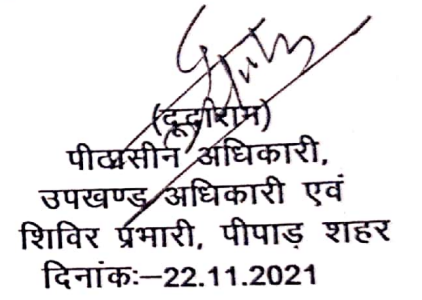 (दूदाराम)
पीठासीन अधिकारी,
उपखण्ड अधिकारी एवं
शिविर प्रभारी, पीपाड़ शहर
दिनांकः–22.11.2021